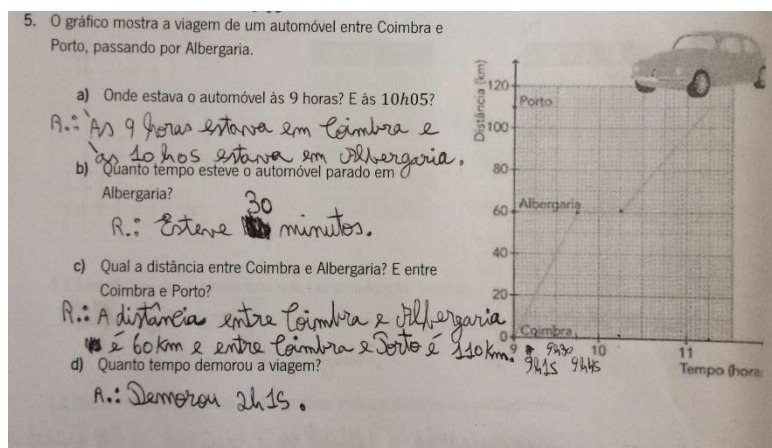 5. O gráfico mostra a viagem de um automóvel entre Coimbra e
Porto, passando por Albergaria.
a) Onde estava o automóvel às 9 horas? E às 10h05?
R.: Às 9 horas estava em Coimbra e
às 10h05 estava em Albergaria.
b) Quanto tempo esteve o automóvel parado em
Albergaria?
R.: Esteve 30 minutos.
c) Qual a distância entre Coimbra e Albergaria? E entre
Coimbra e Porto?
R.: A distância entre Coimbra e Albergaria
é 60km e entre Coimbra e Porto é 110km.
d) Quanto tempo demorou a viagem?
R.: Demorou 2h15.
Distância (km)
120
Porto
100
80
60
Albergaria
40
20
0
Coimbra
9
9h30
10
11
9h15 9h45
Tempo (hora